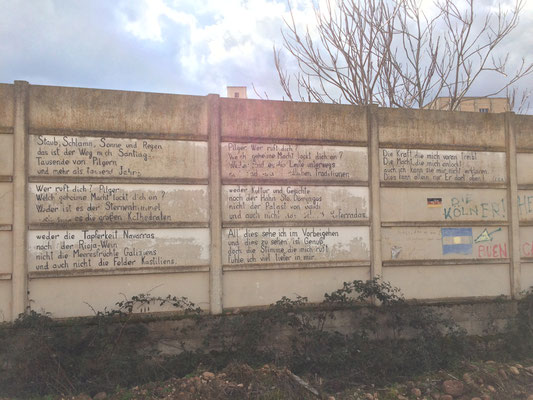 Staub, Schlamm, Sonne und Regen
das ist der Weg nach Santiago
Tausende von Pilgern
und mehr als tausend Jahre
Wer ruft dich? Pilger
Welch geheime Macht lockt dich an?
Weder ist es der Sternenhimmel
es die großen Kathedralen
weder die Tapferkeit Navarras
noch der Rioja-Wein
nicht die Meeresfrüchte Galiziens
und auch nicht die Felder Kastiliens.
Pilger, Wer ruft dich?
Welch geheime Macht lockt dich an?
Weder sind es die Leute unterwegs
Traditionen
weder Kultur und Geschichte
noch der Hahn Sto. Domingos
nicht der Palast von Gaudi
und auch nicht
All dies sehe ich im Vorbeigehen
und dies zu sehen ist Genuß
doch die Stimme die mich ruft
fühle ich viel tiefer in mir.
Die Kraft die mich voran treibt
Die Macht die mich anlockt
auch ich kann sie mir nicht erklären
Dies kann allein nur Er dort oben!
DIE
KÖLNER!
HE
BUEN